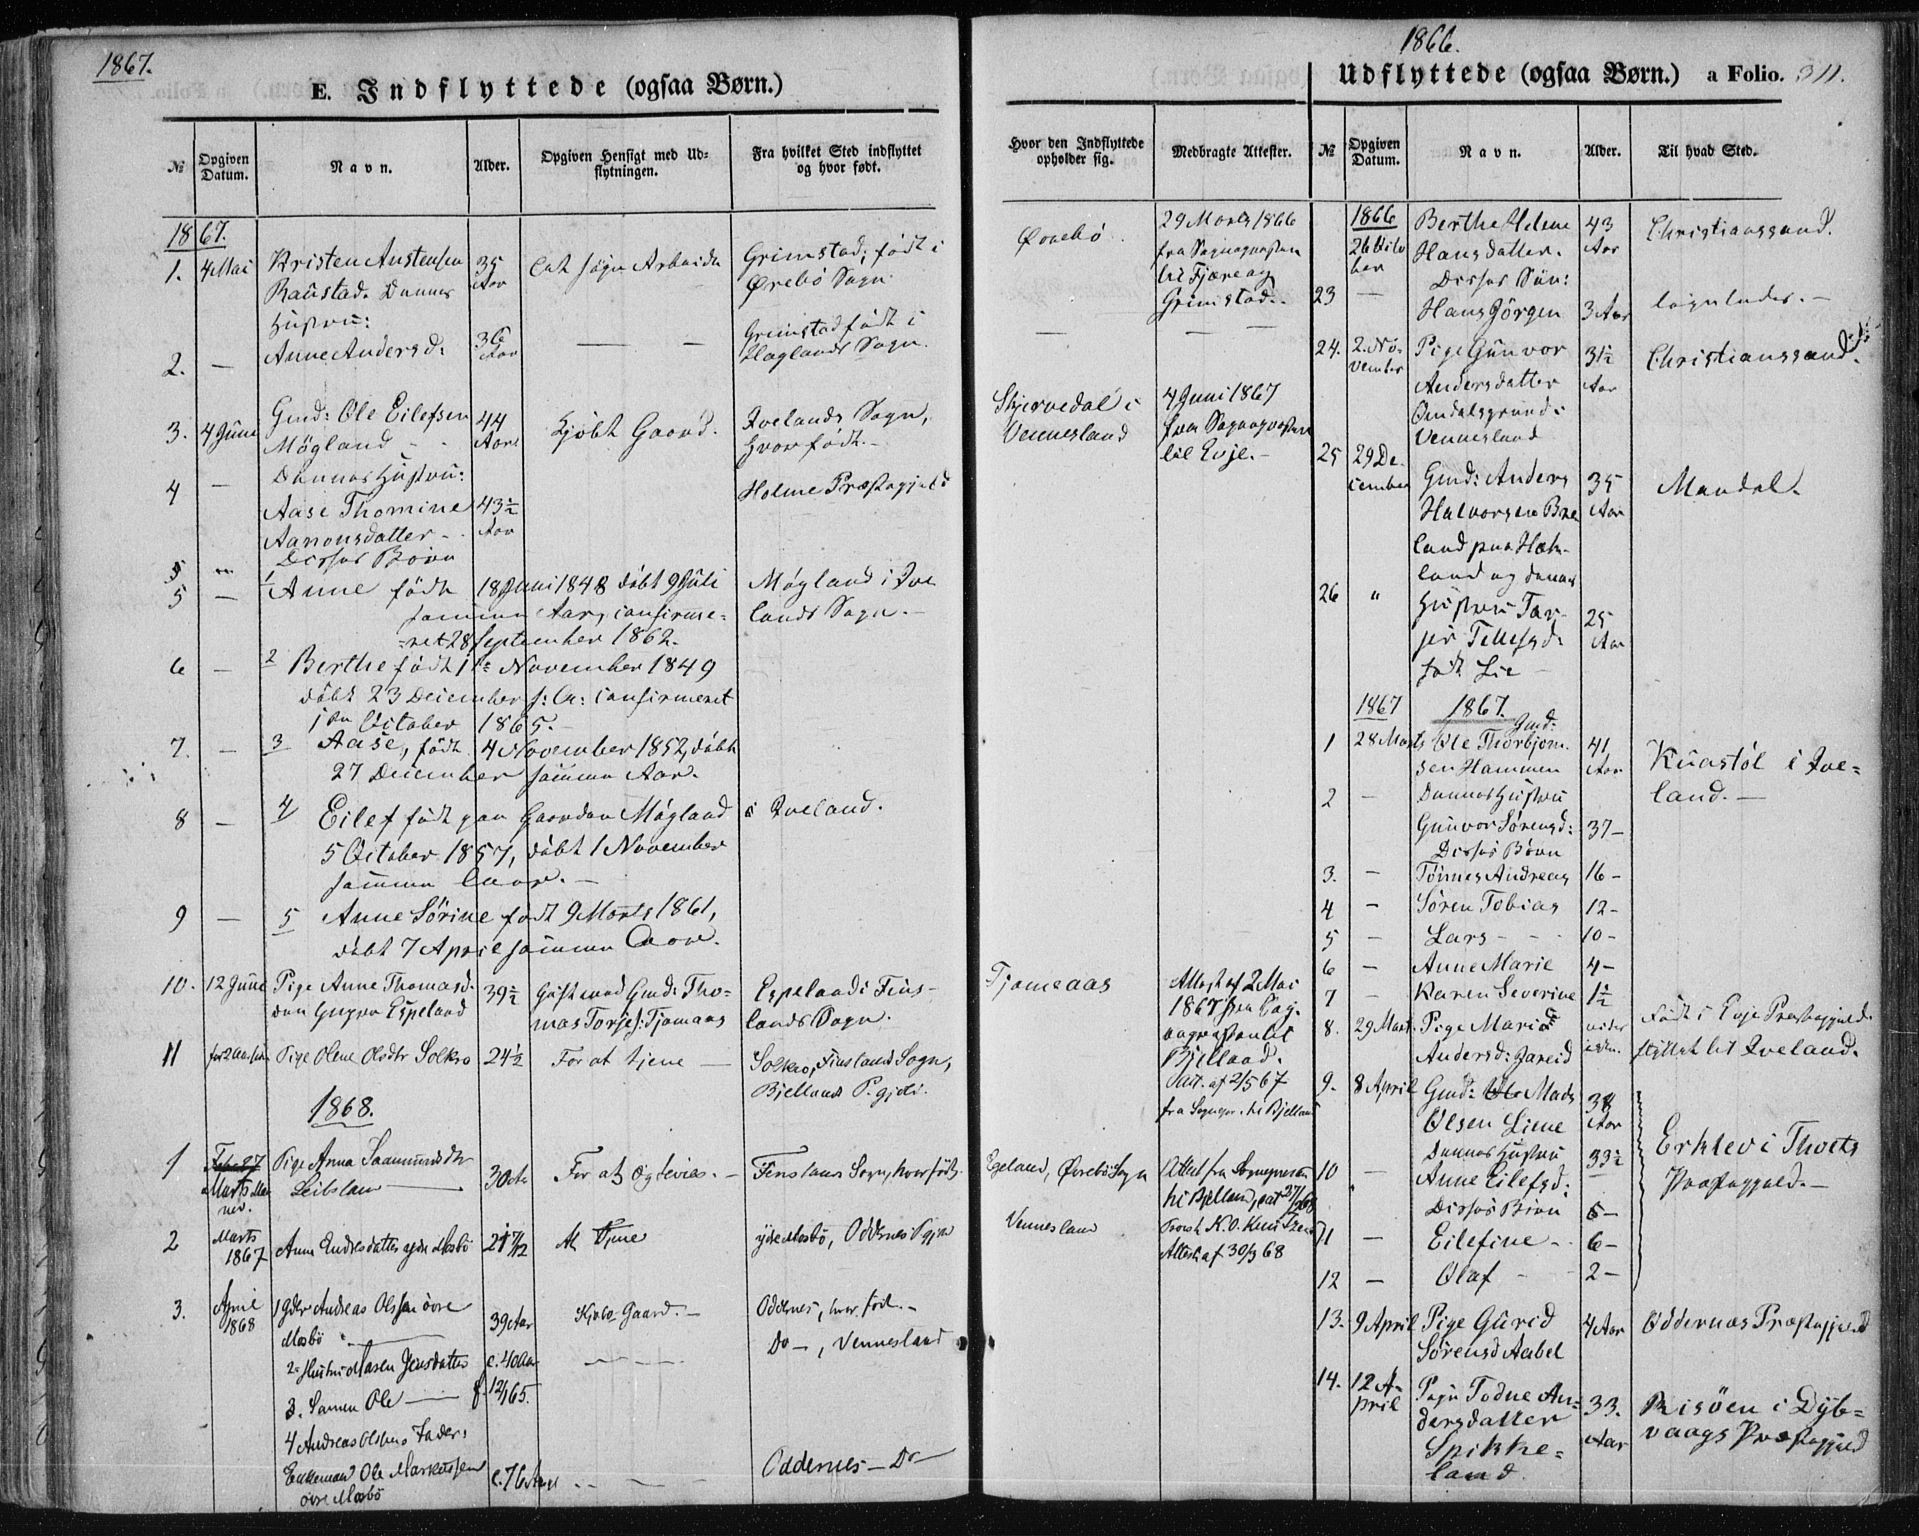 1867.
E. Indflyttede (ogsaa Børn.)
№
Opgiven Datum.
Navn.
Alder.
Opgiven Hensigt med Udflytningen.
Fra hvilket Sted indflyttet og hvor født.
Hvor den Indflyttede opholder sig.
Medbragte Attester.
1867.
1. 4 Mai Kristen Austensen 35 Aar Grimstad, født i
Øvrebö Sogn Øvrebö 29 Marts 1866
Raustad. Dennes
til Fjære og
Hustru:
Grimstad.
2. — Anne Andersd: 36 Aar — Grimstad født i
Heglands Sogn.
3. 4 Juni Gmd: Ole Eilefsen 44 Aar Kjöbt Gaard. Ivelands Sogn,
Mögland hvor født.
Skjervedal i
Vennesland
4 Juni 1867
fra Sognepresten
til Evje.
4 — Dennes Hustru:
Holme Præstegjeld
Aase Thomine 43½ Aar
Aanonsdatter
Disses Børn
5 — 1 Anne født 18 Juni 1848 döbt 9 Juli Mögland i Ive-
samme Aar, confirme- lands Sogn.
ret 28 September 1862.
6 — 2 Berthe født 1ste November 1849
döbt 23 December s: A: confirmeret
1ste October 1865.
7. — 3 Aase, født 4 November 1852, döbt
27 December samme Aar.
8 — 4 Eilef født paa Gaarden Mögland i Iveland.
5 October 1857, döbt 1 November
samme Aar.
9 — 5 Anne Sörine født 9 Marts 1861,
döbt 7 April samme Aar.
10. 12 Juni Pige Anne Thomasd. 39½ Gift med Gmd: Tho- Espeland i Fins-
Espeland mas Torjes: Tjomaas lands Sogn.
Tjomeaas
Attest af 2 Mai
1867 fra Sog-
nepresten til
Bjelland.
11 Pige Olene Olsdtr Solkro 24½ For at tjene — Solkro, Finsland Sogn,
Bjelland P. gjeld.
Att. af 2/5 67
fra Sognepr. til Bjelland
1868.
1 Pige Anna Saamundsdtr 30 Aar For at Finsland Sogn, hvor født.
Marts
Egeland, Øvrebö Sogn
Attest fra Sognepresten
til Bjelland, dat 27/2 68
2 Marts 1867 Anne Endresdatter ydre Mosbö 21 7/12 At tjene ydre Mosbö, Oddernes Pgjeld
Vennesland
Attest af 30/3 68
3. April 1868 1 Gdbr Andreas Olssen övre 39 Aar Kjöbt Gaard. — Oddernes, hvor fød. —
Mosbö
Do —, Vennesland
2 Hustru Maren Jensdatter c. 40 Aar
3. Sønnen Ole — f. 12/1 65.
4 Andreas Olsens Fader:
Enkemand Ole Markussen c. 76 Aar Oddernes — Do
övre Mosbö
1866.
Udflyttede (ogsaa Børn.) a Folio. 311.
№
Opgiven Datum.
Navn.
Alder.
Til hvad Sted.
1866
26 October Berthe Helene 43 Aar Christianssand.
Hansdatter.
Disses Sön:
23 — Hans Jörgen 3 Aar ligeledes. —
24. 2. November Pige Gunvor 31½ Aar Christianssand.
Andersdatter
Omdalsgrund i
Vennesland
25 29 December Gmd: Anders 35 Aar Mandal.
Halvorsen
land paa Hæ-
land og dennes
26 " Hustru Tor- 25 Aar
Tellefsd.
født Lie
1867 1867.
1 28 Marts Gmd: Ole Thorbjörn- 41 Aar Kuastöl i Ive-
sen Hammen land. —
2 — Dennes Hustru
Gunvor Sörensd: 37 —
Disses Börn
3. — Tönnes Andreas 16 —
4 — Sören Tobias 12 —
5 — Lars 10 —
6 — Anne Marie 4 —
7 — Karen Severine 1½
8. 29 Marts Pige Maria født i Evje Præstegjeld
Andersd: flyttet til Iveland.
9. 8 April Gmd: Mads 38 Aar
Olsen Liene
Dennes Hustru
10 — Anne Eilefsd. 33½
Erklev i Thveits
Præstegjeld. —
Disses Börn 5 —
11 — Eilefine 6 —
12 — Olaf 2 —
13. 9 April Pige Gurid 4 Aar Oddernæs Præstegjeld
Sörensd Aabel
14. 12 April Pige Todne An- 33. Aar Risöen i Dyb-
dersdatter vaags Præstegjeld
Spikke-
land.